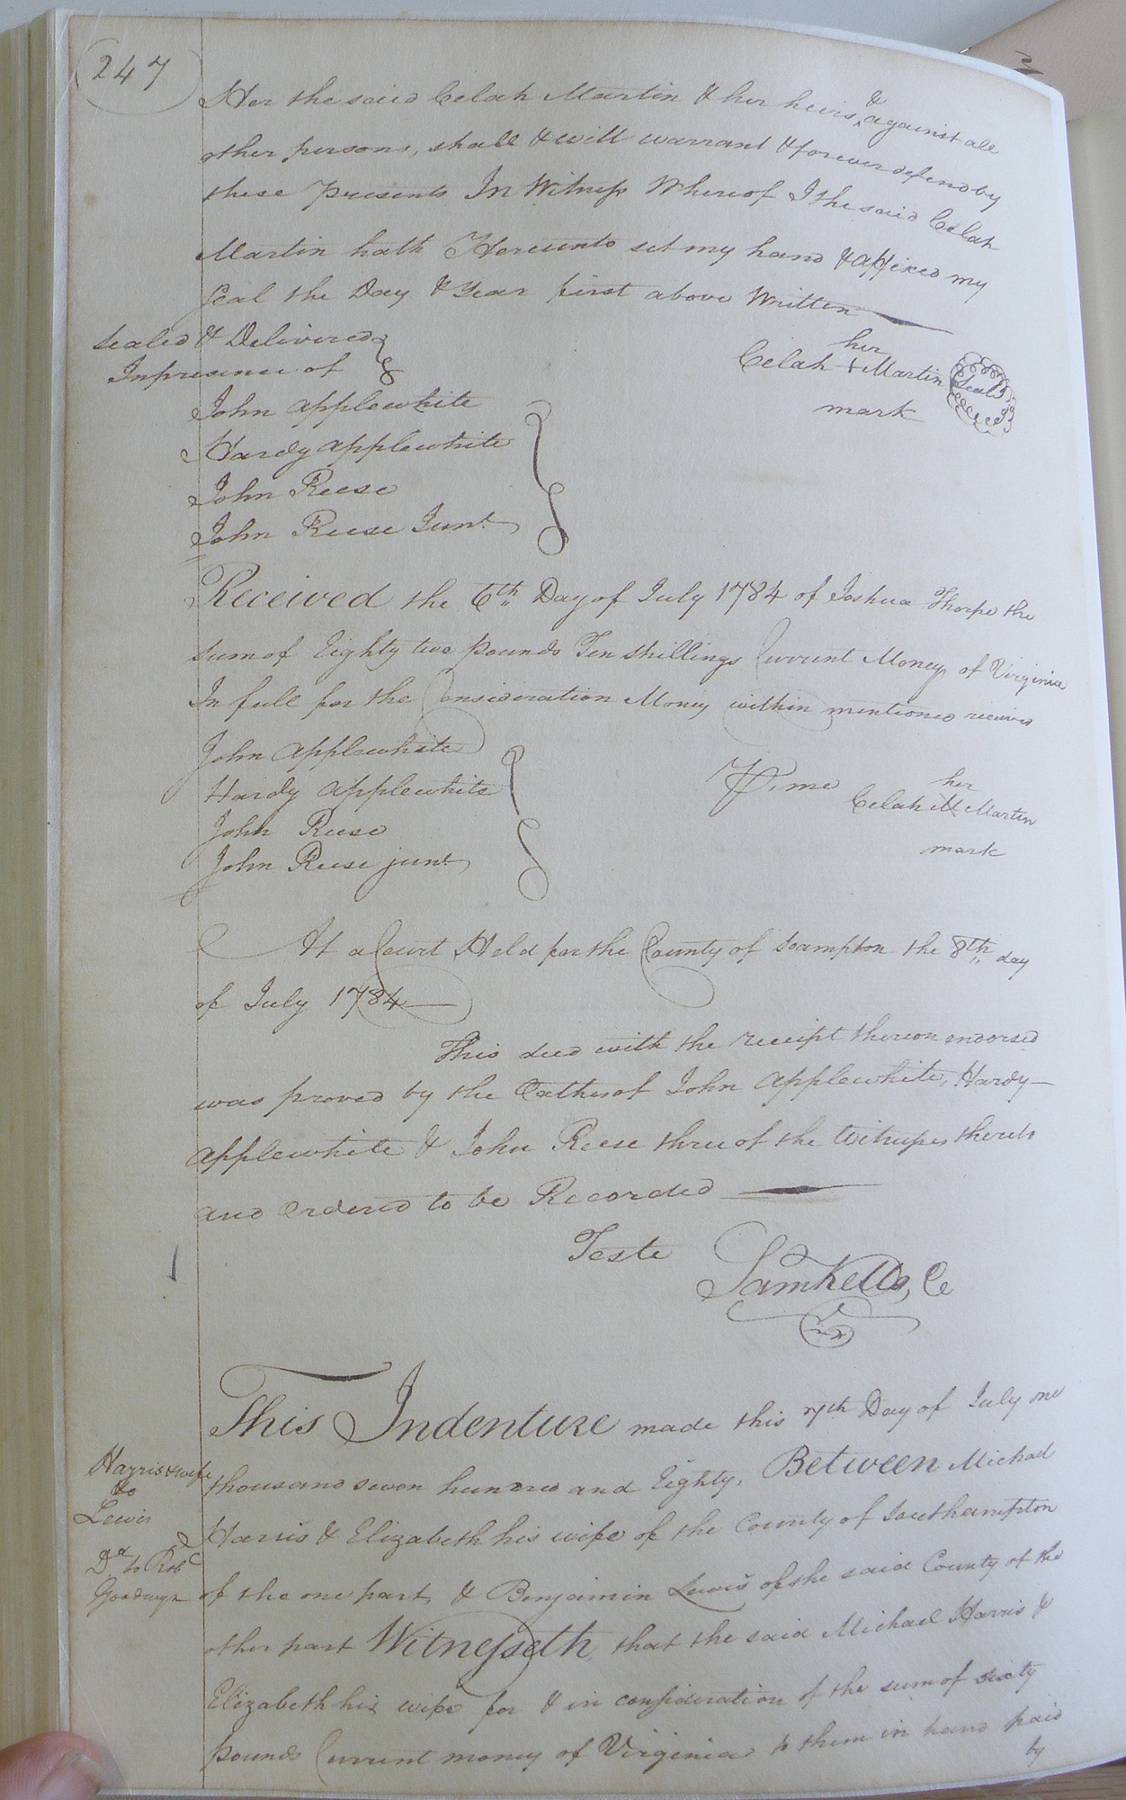 247
Her the said Celah Martin & her heirs, & against all
other persons, shall & will warrant & forever defend by
these Presents In Witness Whereof I the said Celah
Martin hath Hereunto set my hand & affixed my
Seal the Day & Year first above Written
Sealed & Delivered
In presence of
her
Celah + Martin Seal
mark
John Applewhite
Hardy Applewhite
John Reese
John Reese Junr.
Received the 6th Day of July 1784 of Joshua Thorpe the
sum of Eighty two pounds Ten shillings Current Money of Virginia
In full for the Consideration Money within mentioned received
John Applewhite
Hardy Applewhite
John Reese
John Reese junr.
P. me
her
Celah M Martin
mark
At a Court Held for the County of Soampton the 8th day
of July 1784
This deed with the receipt thereon endorsed
was proved by the Oathes of John Applewhite, Hardy
Applewhite & John Reese three of the Witnesses thereto
and Ordered to be Recorded
Teste Sam Kello, Cc
This Indenture made this 7th Day of July one
thousand seven hundred and Eighty, Between Michael
Harris & Elizabeth his wife of the County of Southampton
of the one part, & Benjamin Lewis of the said County of the
other part Witnesseth, that the said Michael Harris &
Elizabeth his wife for & in consideration of the sum of sixty
pounds Current money of Virginia to them in hand paid
by
Harris & wife
to
Lewis
Dd to Robt
Goodwyn